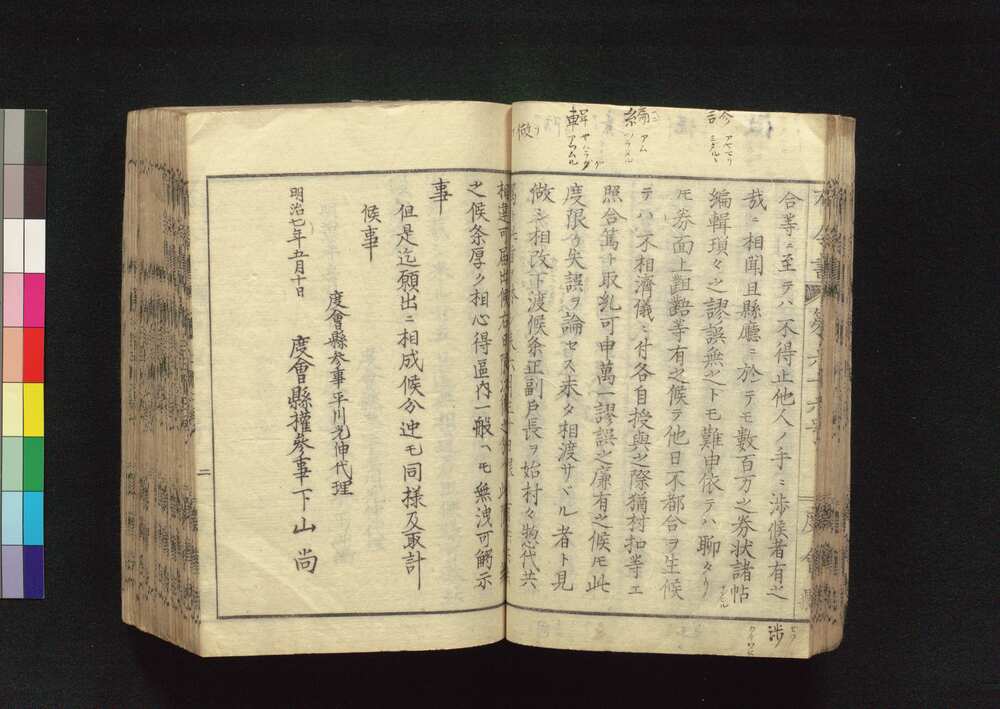 合等ニ至テハ不得止他人ノ手ニ渉候者有之
哉ニ相聞且縣廳ニ於テモ數百万之券状諸帖
編輯瑣々之謬誤無之トモ難申依テハ聊タリ
モ券面上齟齬等有之候ヲ他日不都合ヲ生候
テハ不相濟儀ニ付各自授與之際猶村扣等エ
照合篤ト取糺可申萬一謬誤之廉有之候モ此
度限ハ失誤ヲ論セス未タ相渡サヾル者ト見
做シ相改下渡候条正副戸長ヲ始村々惣代共
之候条厚ク相心得區内一般ヘモ無洩可觸示
事
但是迄願出ニ相成候分迚モ同様及取計
候事
度會縣參事平川光伸代理
明治七年五月十日
度會縣權參事下山尚
二
謬
編
輯
做
渉